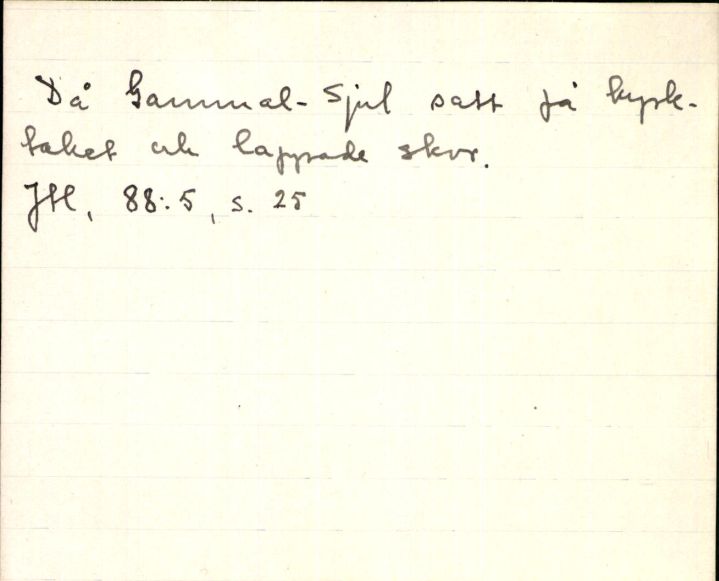 Då Gammal-Sjul satt på kyrk-
taket och lappade skor.
JH, 88:5, s. 25